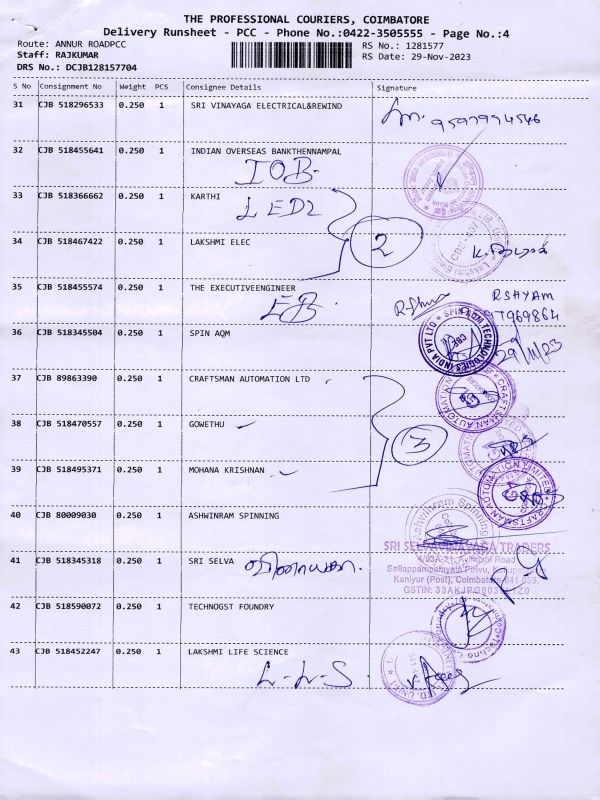 THE PROFESSIONAL COURIERS, COIMBATORE
Delivery Runsheet - PCC - Phone No.:0422-3505555 - Page No.:4
Route: ANNUR ROADPCC
Staff: RAJKUMAR
DRS No.: DCJB128157704
RS No.: 1281577
RS Date: 29-Nov-2023
S No Consignment No Weight PCS Consignee Details Signature
31 CJB 518296533 0.250 1 SRI VINAYAGA ELECTRICAL&REWIND
9597994546
32 CJB 518455641 0.250 1 INDIAN OVERSEAS BANKTHENNAMPAL
IOB
33 CJB 518366662 0.250 1 KARTHI
2
34 CJB 518467422 0.250 1 LAKSHMI ELEC
35 CJB 518455574 0.250 1 THE EXECUTIVEENGINEER
EB
RSHYAM
36 CJB 518345504 0.250 1 SPIN AQM
29/11/23
37 CJB 89863390 0.250 1 CRAFTSMAN AUTOMATION LTD
CRAFTSMAN AUTOMATION
38 CJB 518470557 0.250 1 GOWETHU
3
39 CJB 518495371 0.250 1 MOHANA KRISHNAN
CRAFTSMAN AUTOMATION LIMITED
40 CJB 80009030 0.250 1 ASHWINRAM SPINNING
SRI SELVAVINAYAGA TRADERS
41 CJB 518345318 0.250 1 SRI SELVA
Kaniyur (Post), Coimbatore-641 659.
42 CJB 518590072 0.250 1 TECHNOGST FOUNDRY
43 CJB 518452247 0.250 1 LAKSHMI LIFE SCIENCE
L-L-S